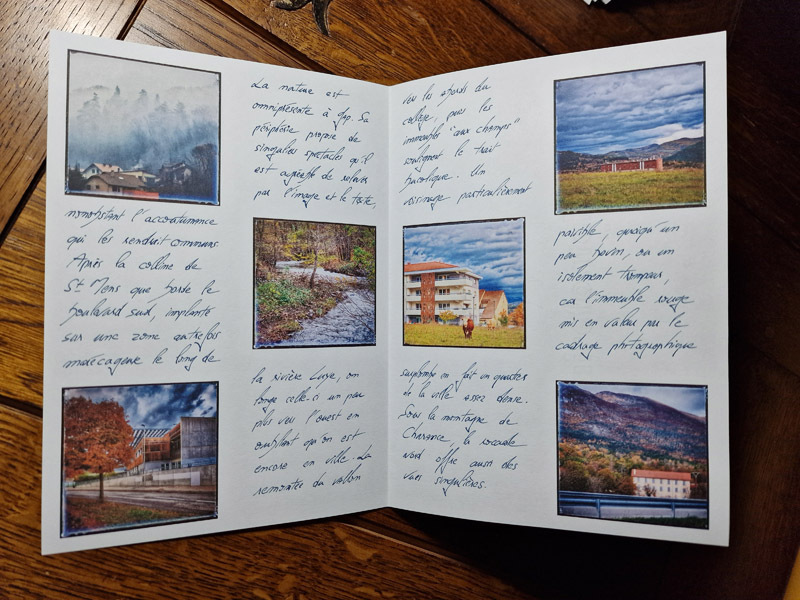 La nature est
omniprésente à Gap. Sa
périphérie propose de
singuliers spectacles qu'il
est agréable de relater
par l'image et le texte,
nonobstant l'accoutumance
qui les rendrait communs.
Après la colline de
St Mens que borde le
boulevard sud, implanté
sur une zone autrefois
marécageuse le long de
la rivière Luye, on
longe celle-ci un peu
plus vers l'ouest en
oubliant qu'on est
encore en ville. La
remontée du vallon
vers les abords du
collège, puis les
immeubles "aux champs"
soulignent le trait
bucolique. Un
voisinage particulièrement
paisible, quoiqu'un
peu bovin, ou un
isolement trompeur,
car l'immeuble rouge
mis en valeur par le
cadrage photographique
surplombe en fait un quartier
de la ville assez dense.
Sous la montagne de
Charance, la rocade
nord offre aussi des
vues singulières.